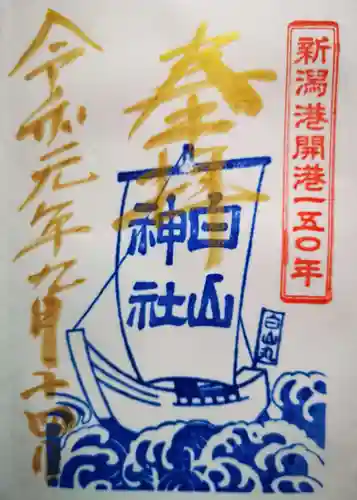 新潟港開港一五〇年
奉拝
白山
神社
白山丸
令和元年九月二十四日